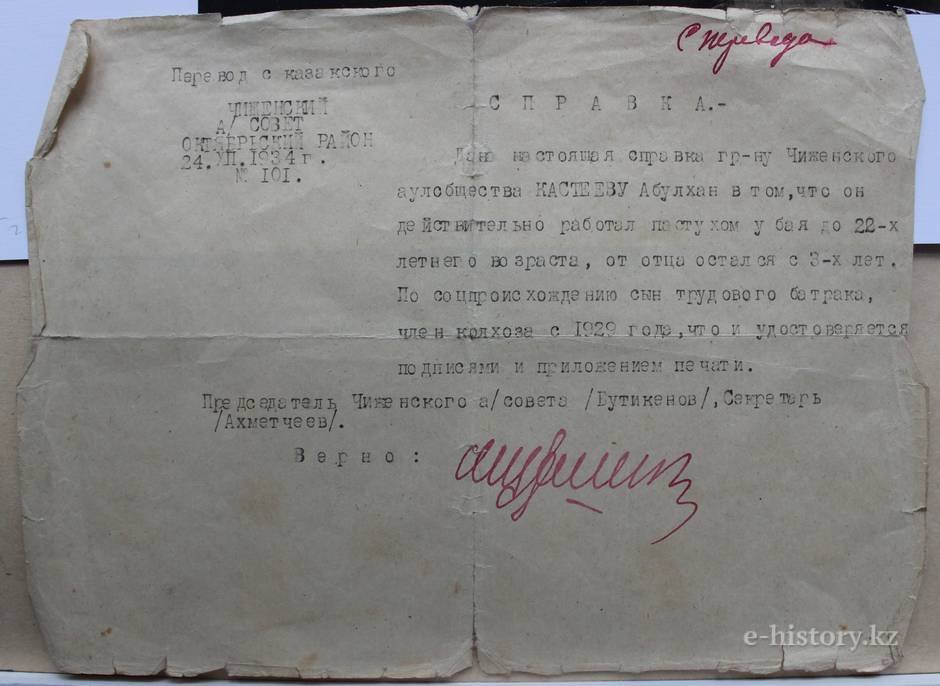 С перевода
Перевод с казакского
ЧИЖЕНСКИЙ
А/ СОВЕТ
ОКТЯБРСКИЙ РАЙОН
24.XII.1934 г.
№ 101.
С П Р А В К А.-
Дана настоящая справка гр-ну Чиженского
аулобщества КАСТЕЕВУ Абулхан в том,что он
действительно работал пастухом у бая до 22-х
летнего возраста, от отца остался с 3-х лет.
По соцпроисхождению сын трудового батрака,
член колхоза с 1929 года,что и удостоверяется
подписями и приложением печати.
Председатель Чиженского а/совета /Бутикенов/,Секретарь
/Ахметчеев/.
В е р н о :
e-history.kz